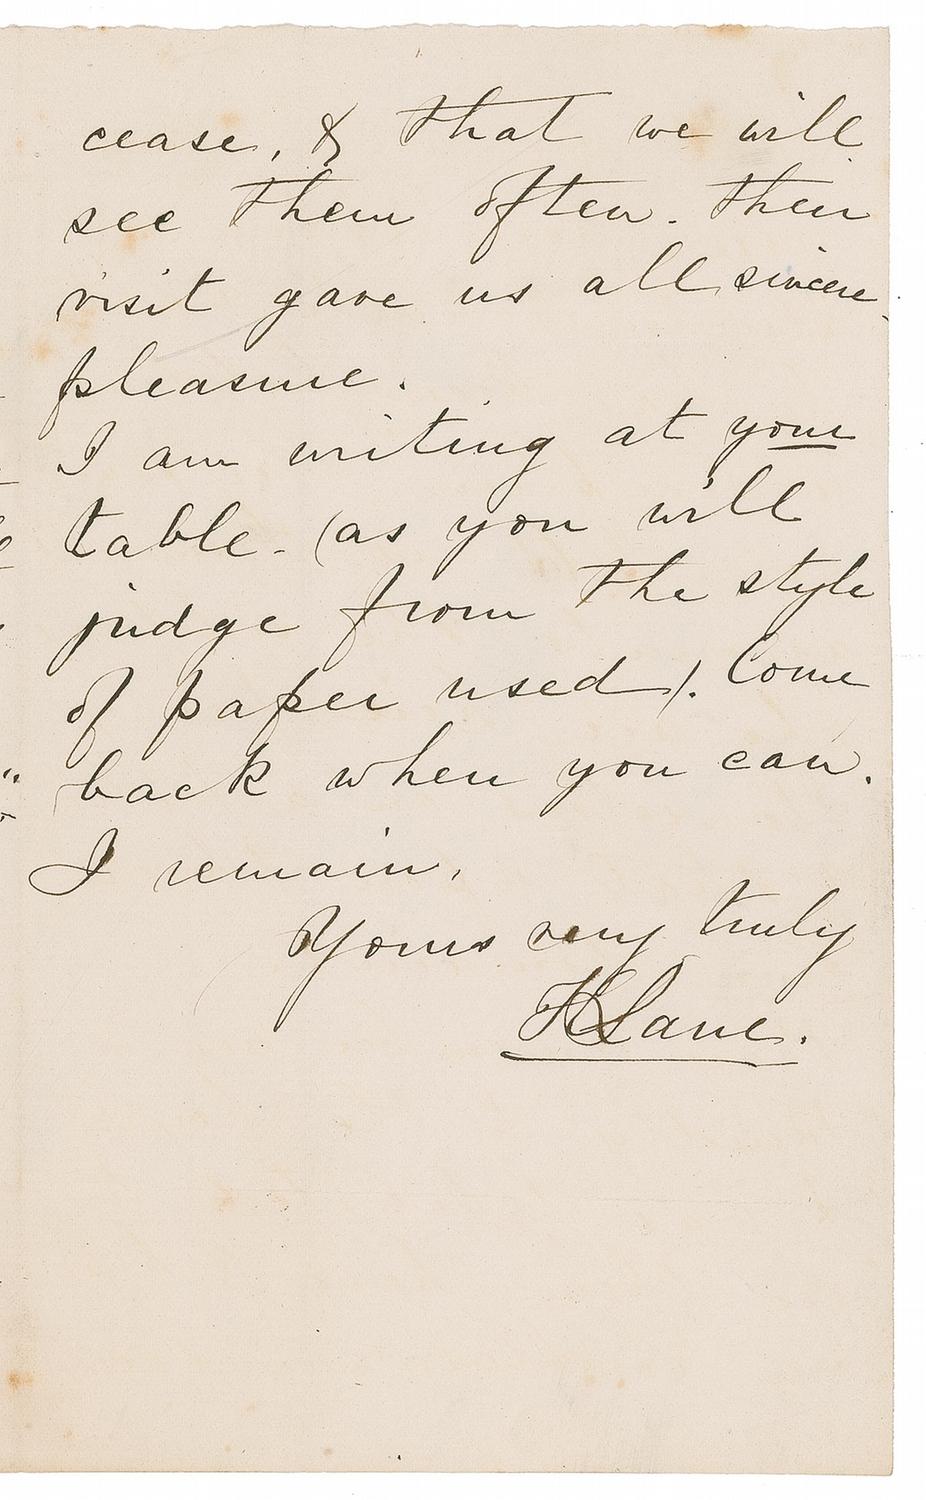 cease, & that we will
see them often. Their
visit gave us all sincere
pleasure.
I am writing at your
table. (as you will
judge from the style
of paper used). Come
back when you can.
I remain,
Yours very truly
Lane.